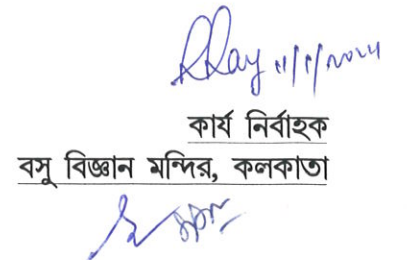 RRay 11/1/2024
কার্য নির্বাহক
বসু বিজ্ঞান মন্দির, কলকাতা